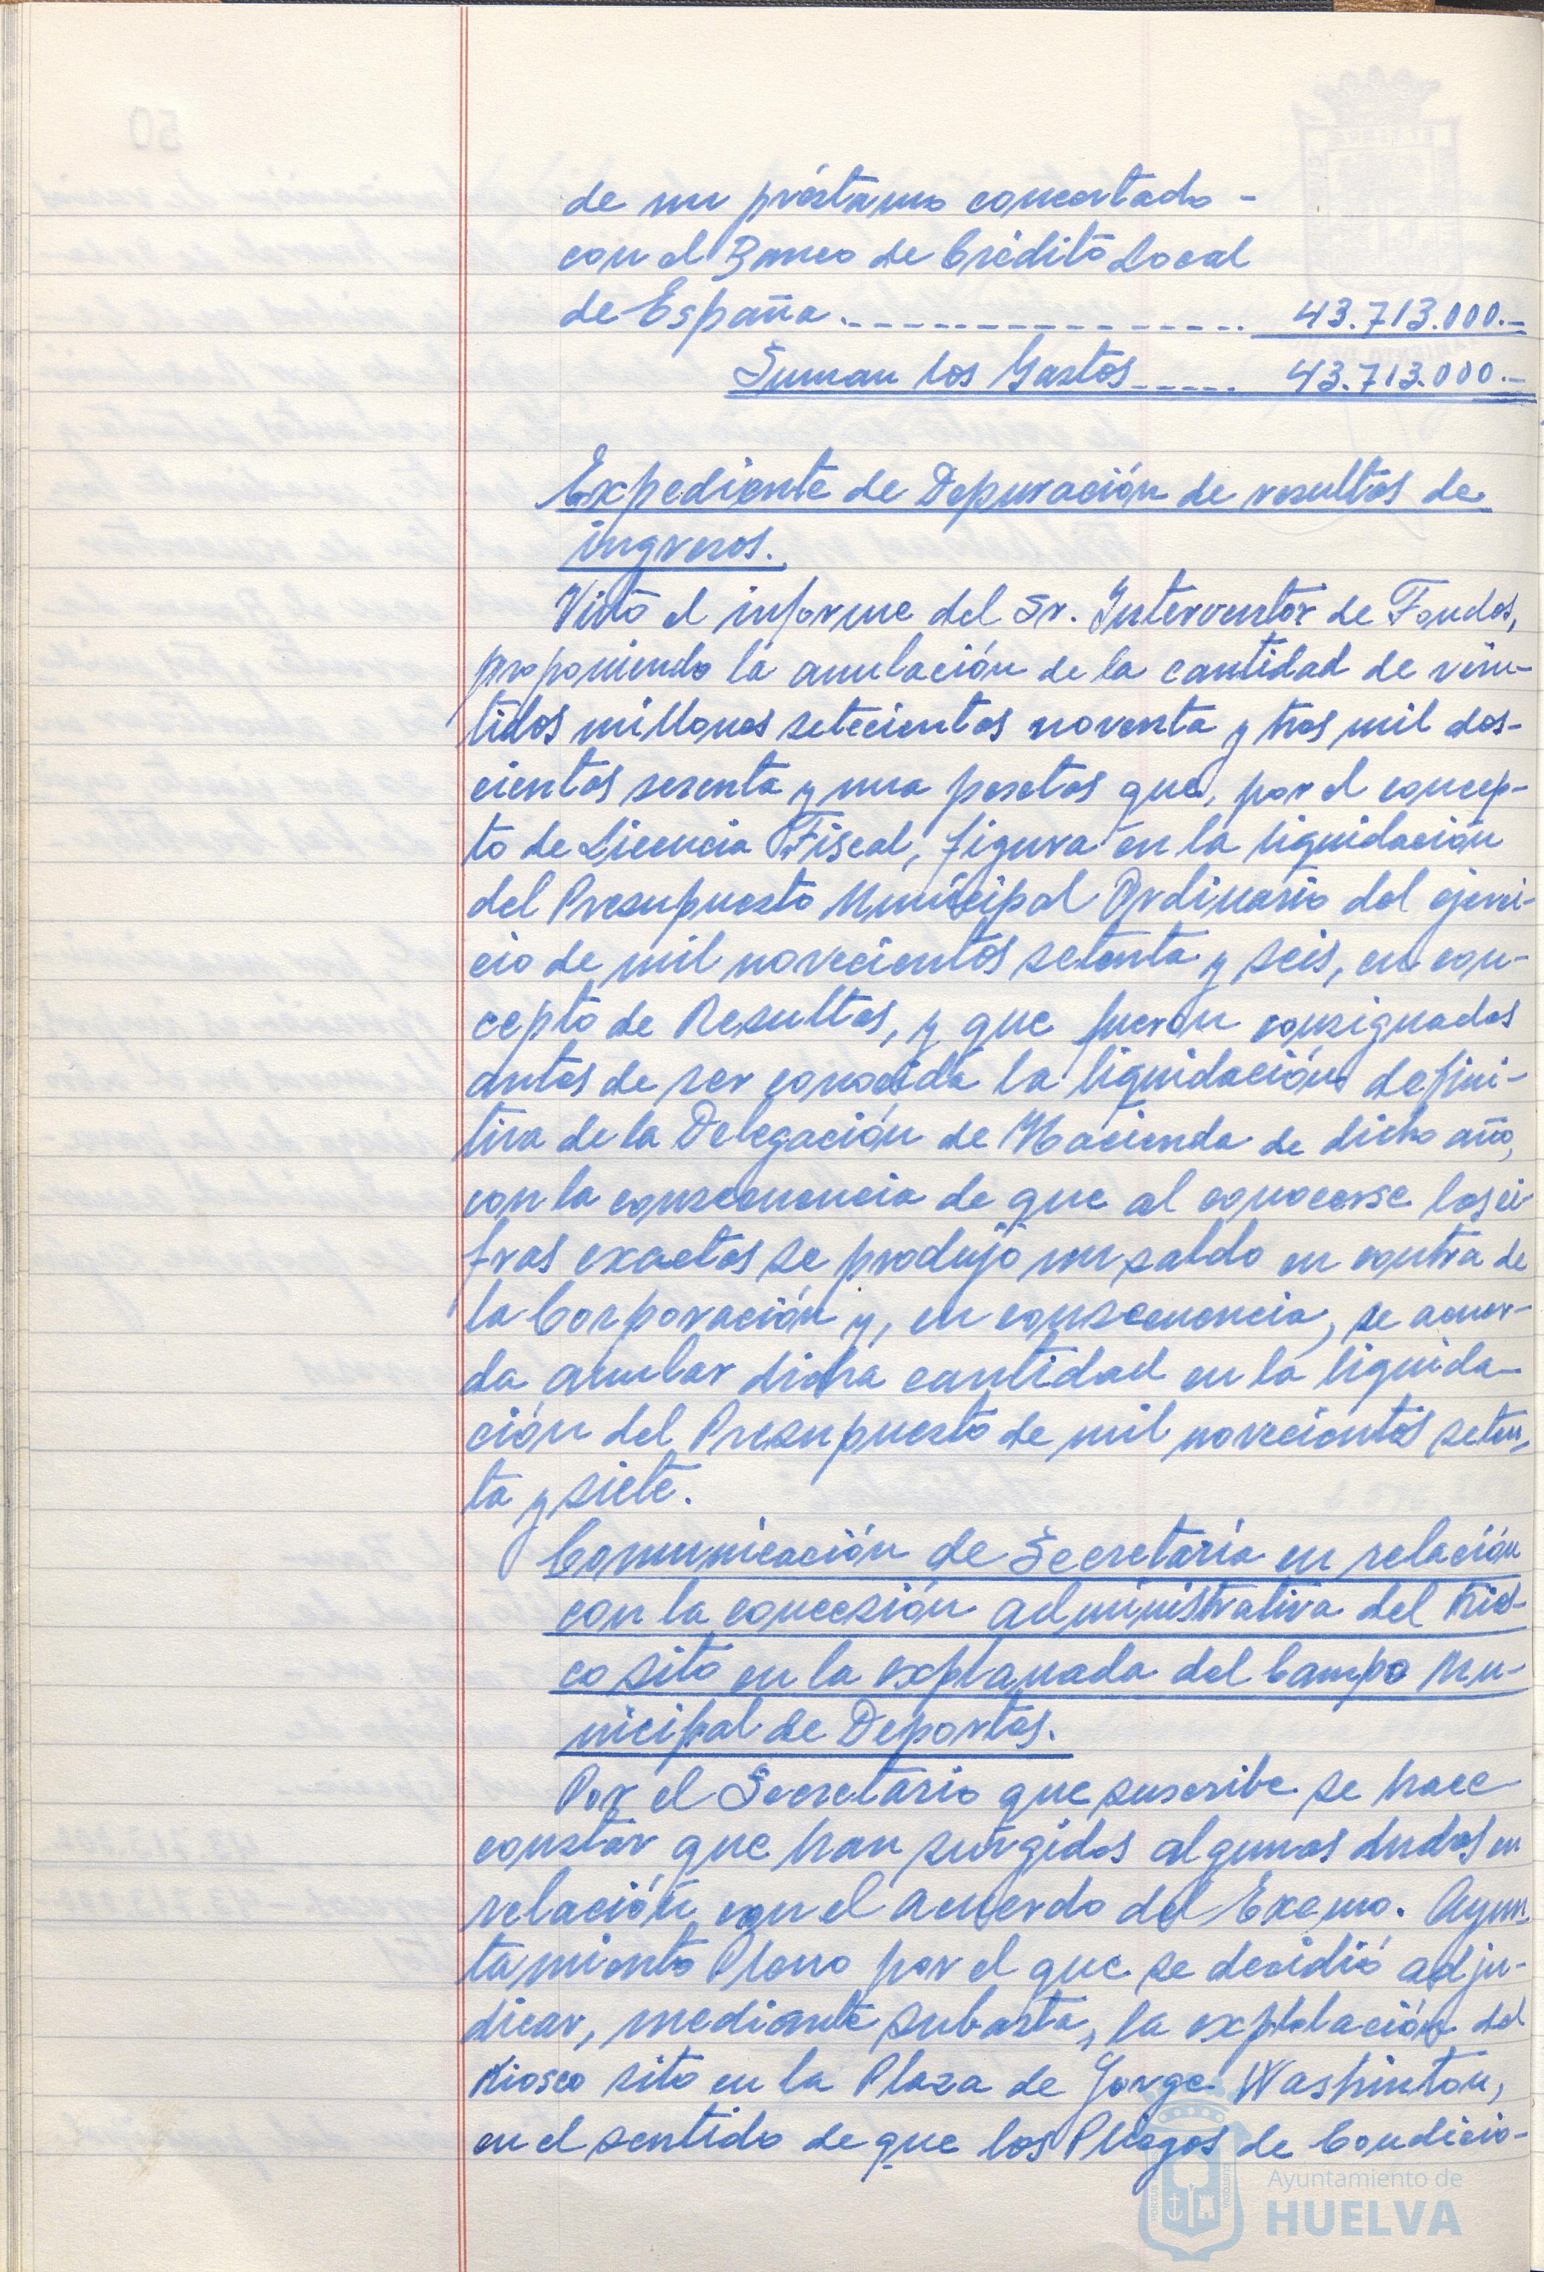 de un préstamo concertado -
con el Banco de Crédito Local
de España. --------------- 43.713.000.-
Suman los Gastos ----- 43.713.000.-
Expediente de Depuración de resultas de
ingresos.
Visto el informe del Sr. Interventor de Fondos,
proponiendo la anulación de la cantidad de vein-
tidos millones setecientas noventa y tres mil dos-
cientas sesenta y una pesetas que, por el concep-
to de Licencia Fiscal, figura en la liquidación
del Presupuesto Municipal Ordinario del ejerci-
cio de mil novecientos setenta y seis, en con-
cepto de Resultas, y que fueron consignadas
antes de ser conocida la liquidación defini-
tiva de la Delegación de Hacienda de dicho año,
con la consecuencia de que al conocerse las ci-
fras exactas se produjo un saldo en contra de
la Corporación y, en consecuencia, se acuer-
da anular dicha cantidad en la liquida-
ción del Presupuesto de mil novecientos seten-
ta y siete.
Comunicación de Secretaría en relación
con la concesión administrativa del Kios-
co sito en la explanada del Campo Mu-
nicipal de Deportes.
Por el Secretario que suscribe se hace
constar que han surgidos algunas dudas en
relación con el acuerdo del Excmo. Ayun-
tamiento Pleno por el que se decidió adju-
dicar, mediante subasta, la explotación del
Kiosco sito en la Plaza de Jorge Washinton,
en el sentido de que los Pliegos de Condicio-
Ayuntamiento de
HUELVA